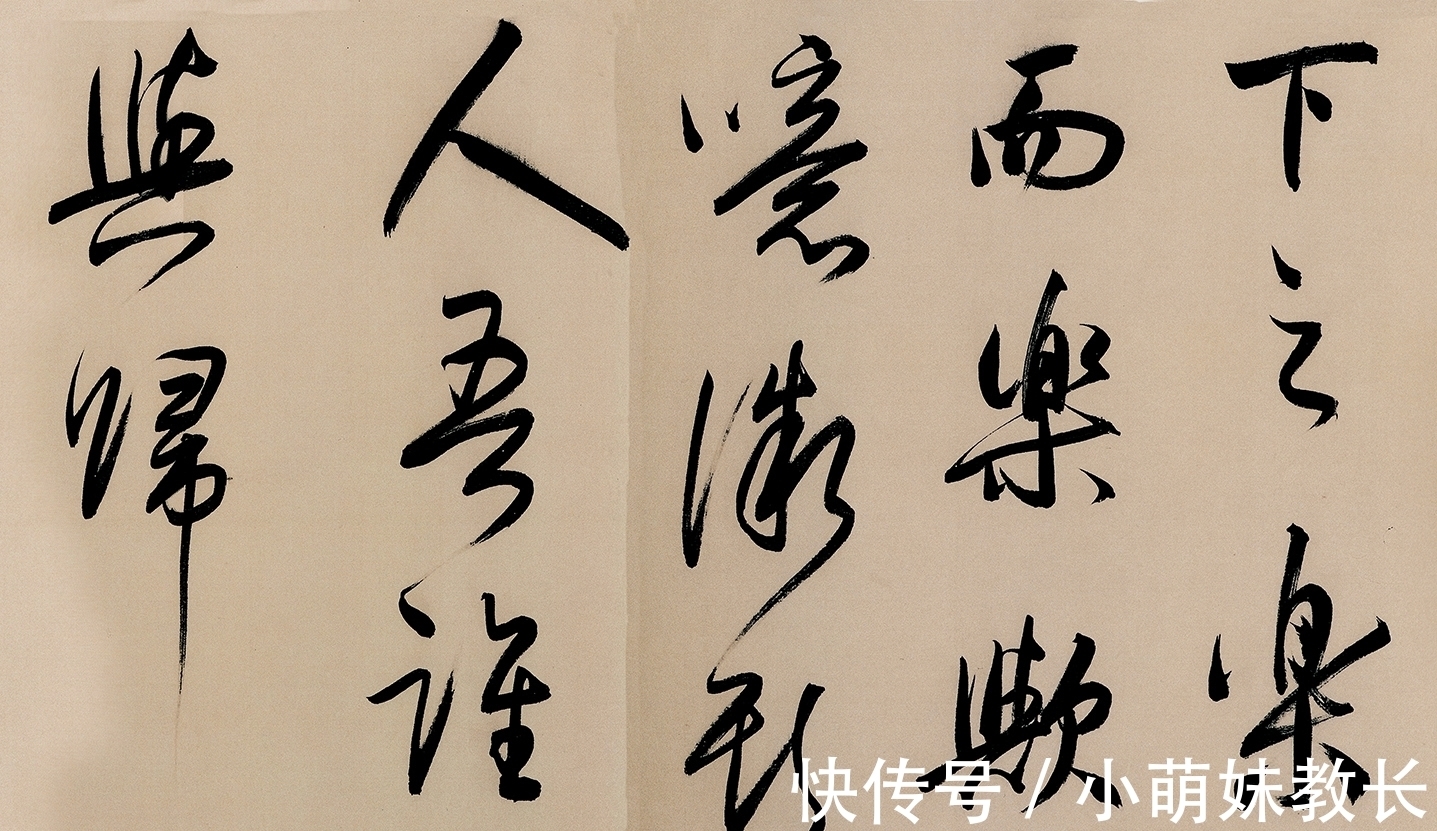 下之樂
而樂歟
噫微斯
人吾誰
與歸
快传号 / 小萌妹教长